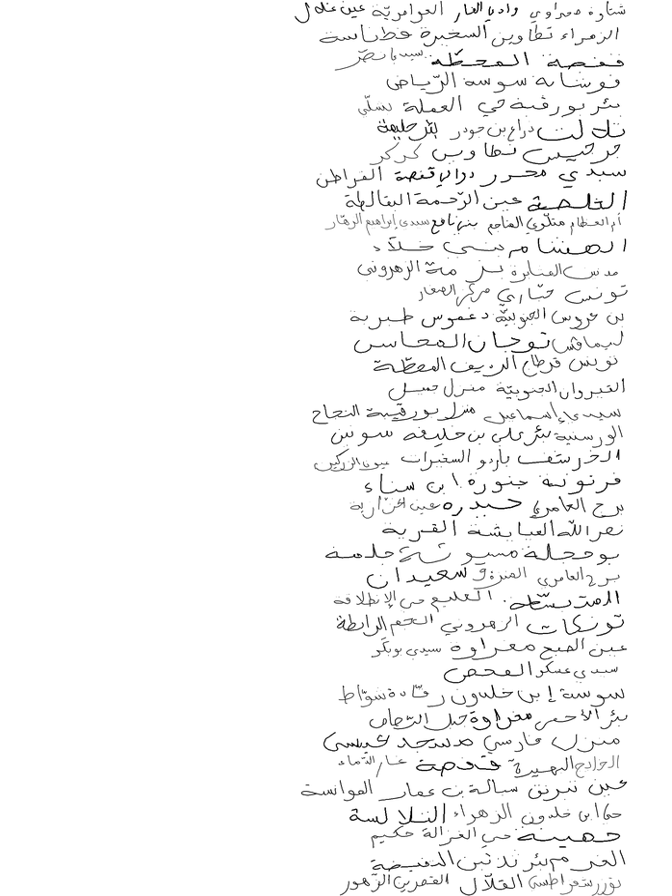 شتاوة صحراوي وادي الغار العوامريّة عين علال
الزهراء تطاوين السخيرة قطناسة
قفصة المحطّة سيدي نصر
فوشانة سوسة الرّياض
بئر بورقبة حي العملة تسلّي
تلالت ذراع بن جودر بئر حليمة
جرجيس تطاوين كركر
سيدي محرز دوالي قفصة القراطن
الخلصة عين الرّحمة البقالطة
أم العظام منلوي المناجم بني نافع سيدي إبراهيم الزهّار
الهيشام بني خلّاد
الصنابرة رمّة الزهروني
تونس خبّازي مركز الصغار
بن عروس الجنوبيّة دغموس طبرية
توجان المحاسن
تونس قرطاج الريف المحطّة
القيروان الجنوبيّة منزل جميل
سيدي إسماعيل منزل بورقيبة النجاح
الورسنية بئر علي بن خليفة سونين
الخرشف باردو السفيرات
فرنونة جنورة ابن سناء
برج العامري حيدرة عين الخزازية
نصر الله العيايشة القرية
بوحجلة جلمة
برج العامري المنزه 9 سعيدان
القليع حي الإنطلاقة
تونكات الزهروني الرابطة
عين الصبح مغراوة سيدي بوبكر
سيدي عسكر الفحص
سوسة إبن خلدون رقّادة شوّاط
بئر الأحمر مغراوة جبل
منزل فارسي مسجد عيسى
الحوايج النهيرة قفصة غار الدّماء
عين سبالة بن عمار الموانسة
حي ابن خلدون الزهراء التلالسة
جهينة حي الغزالة حكيم
بئر
توزر القلّال القصرين الزّهور